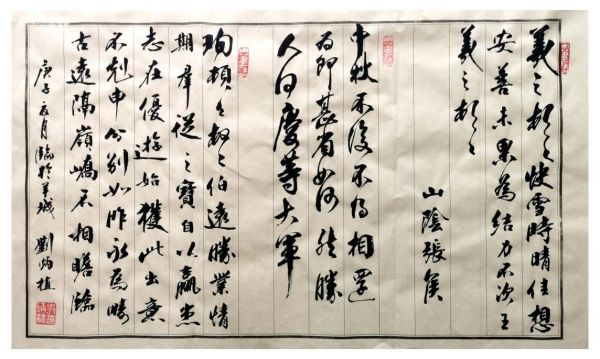 羲之頓首快雪時晴佳想
安善未果為結力不次王
羲之頓首
山陰張侯
中秋不復不得相還
為即甚省如何然勝
人何慶等大軍
珣頓首頓首伯遠勝業情
期群從之寶自以羸患
志在優遊始獲此出意
不剋申分別如昨永為疇
古遠隔嶺嶠不相瞻臨
庚子月臨於羊城 劉炳植